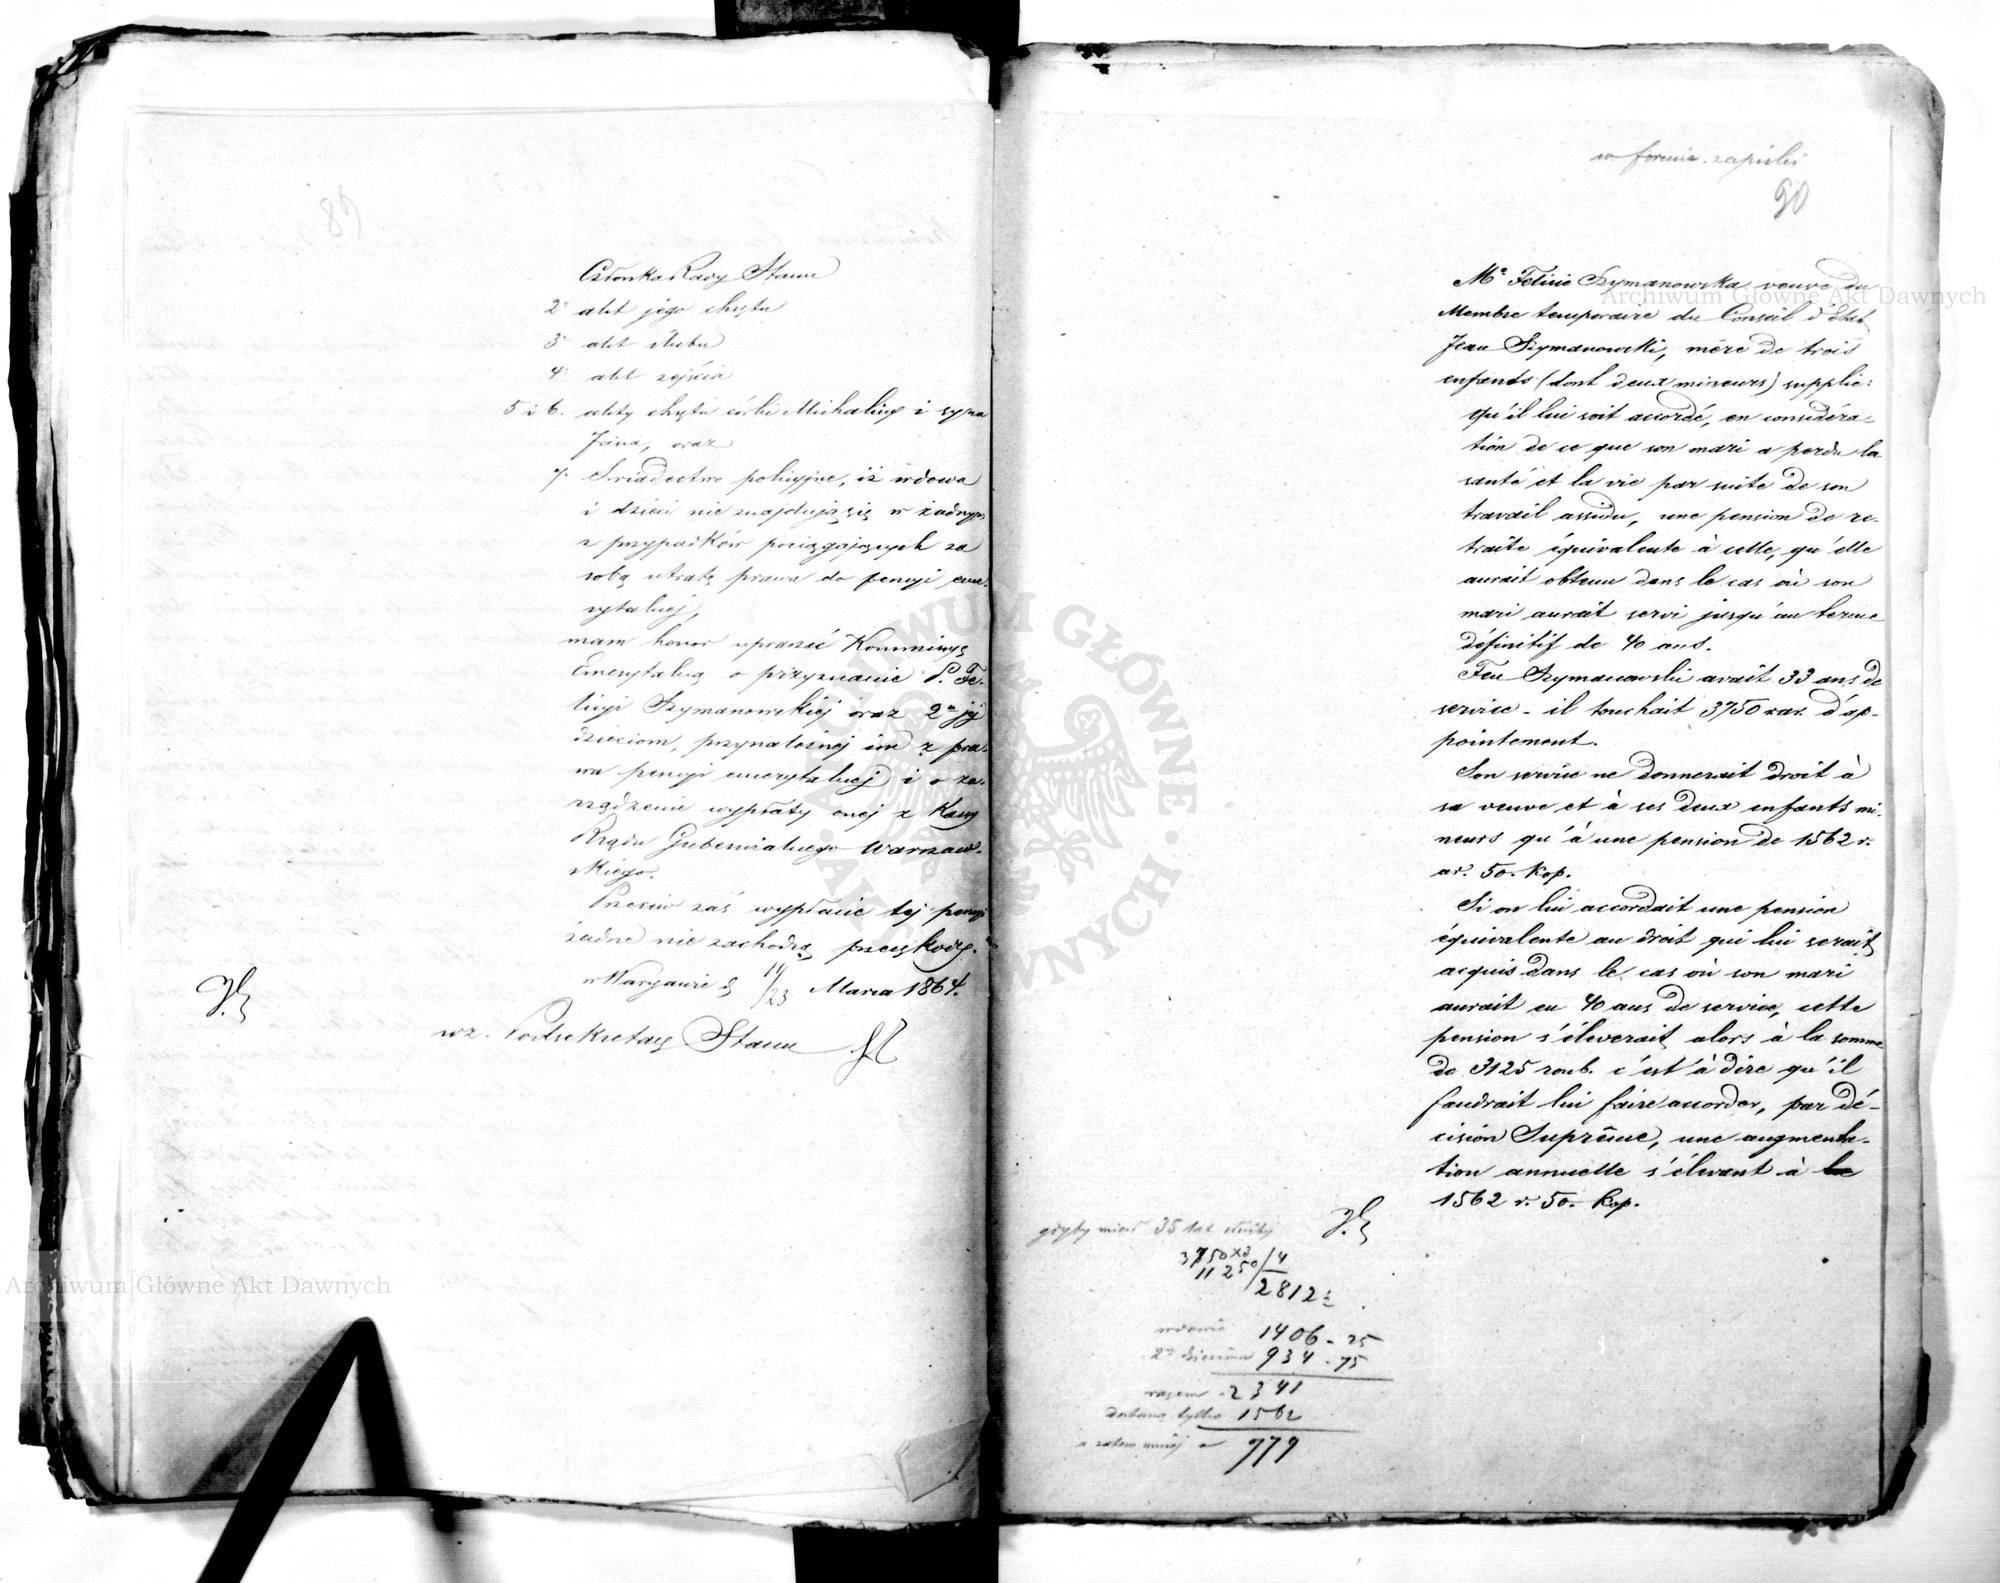 Członka Rady Stanu
2° akt jego chrztu
3° akt ślubu
4° akt zejścia
5 i 6. akty chrztu córki Michaliny i syna
Jana, oraz
7. Świadectwo policyjne, iż wdowa
i dzieci nie znajdują się w żadnym
z przypadków pociągających za
sobą utratę prawa do pensyi eme-
rytalnej,
mam honor uprasić Kommissyę
Emerytalną o przyznanie P. Fe-
licyi Szymanowskiej oraz 2m jej
dzieciom, przynależnej im z pra-
wa pensyi emerytalnej i o za-
rządzenie wypłaty onej z Kassy
Rządu Gubernialnego Warszaw-
skiego.
Przeciw zaś wypłacie tej pensyi
żadne nie zachodzą przeszkody.
w Warszawie d 11/23 Marca 1864.
wz. Podsekretarz Stanu
w formie zapiski
90
Me Felicie Szymanowska veuve du
Membre temporaire du Conseil d'État
Jean Szymanowski, mère de trois
enfants (dont deux mineurs) supplie:
qu'il lui soit accordé, en considéra-
tion de ce que son mari a perdu la
santé et la vie par suite de son
travail assidu, une pension de re-
traite équivalente à celle, qu'elle
aurait obtenu dans le cas où son
mari aurait servi jusqu'au terme
définitif de 40 ans.
Feu Szymanowski avait 33 ans de
service - il touchait 3750 r. ar. d'ap-
pointement.
Son service ne donnerait droit à
sa veuve et à ses deux enfants mi-
neurs qu'à une pension de 1562 r.
ar. 50. Kop.
Si on lui accordait une pension
équivalente au droit qui lui serait
acquis dans le cas où son mari
aurait eu 40 ans de service, cette
pension s'éleverait alors à la somme
de 3125 roub. c'est à dire qu'il
faudrait lui faire accorder, par dé-
cision Suprême, une augmenta-
tion annuelle s'élevant à
1562 r. 50. Kop.
gdyby miał 35 lat służby
3750 x3 / 4
11250 / 2812
wdowie 1406 - 25
2m dzieciom 934 - 75
razem - 2341
dostaną tylko 1562
a zatem mniej o 779
Archiwum Główne Akt Dawnych
Archiwum Główne Akt Dawnych
ARCHIWUM GŁÓWNE · AKT DAWNYCH ·